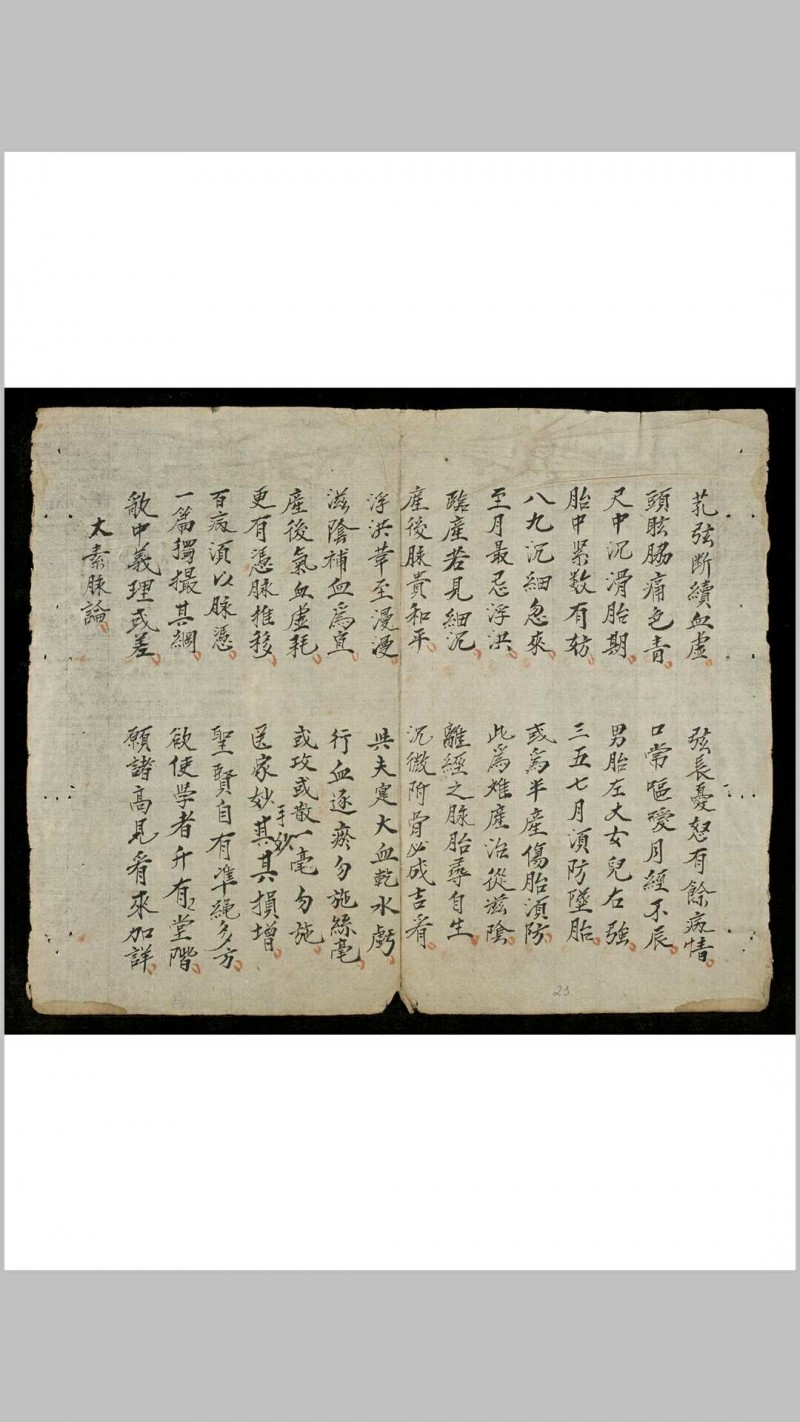 芤弦断續血虛 弦長憂怒有餘病情
頭眩脇痛色青 口常嘔噯月經不辰
尺中沉滑胎期 男胎左大女兒右強
胎中緊数有妨 三五七月湏防墜胎
八九沉細急來 或為半產傷胎湏防
至月最忌浮洪 此為难產治從滋陰
臨產若見細沉 離經之脉胎尋自生
產後脉貴和平 沉微附骨必成吉
浮洪革至漫漫 大血乾水虧
滋陰補血為宜 行血逐瘀勿施絲毫
產後氣血虛耗 或攻或散一毫勿施
更有憑脉推移 医家妙手妙其其損增
百病湏以脉憑 聖賢自有準繩多方
一篇獨撮其綱 欲使学者升有堂階
歌中義理或差 願諸高見看來加詳
太素脉論
23